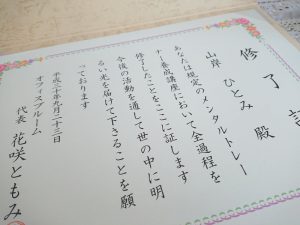 修了証
山岸 ひとみ 殿
あなたは規定のメンタルトレー
ナー養成講座において全過程を
修了したことをここに証します
今後の活動を通して世の中に明
るい光を届けて下さることを願
っております
平成二十九月二十三日
オフィスブルーム
代表 花咲ともみ